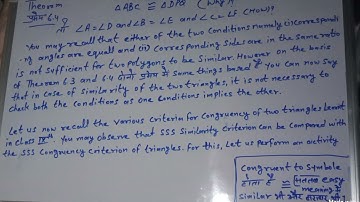 Theorem
प्रमेय 6.4
△ABC ≅ △DPQ (Why?)
∠A = ∠D and ∠B = ∠E and ∠C = ∠F (How)?
You may recall that either of the two Conditions namely (i) Correspondi
ng angles are equal and (ii) Corresponding sides are in the same ratio
is not sufficient for two polygons to be Similar. However on the basis
of Theorem 6.3 and 6.4 दोनो same things based You can now say
that in case of Similarity of the two triangles, it is not necessary to
check both the Conditions as one Conditions implies the other.
Let us now recall the various criteria for Congruency of two triangles learnt
in Class IXth. You may observe that SSS Similarity Criterion can be Compared with
the SSS Congruency Criterion of triangles. For this, Let us perform an activity
Congruent to Symbole
होता है ≅ मतलब easy
meaning में
Similar भी और